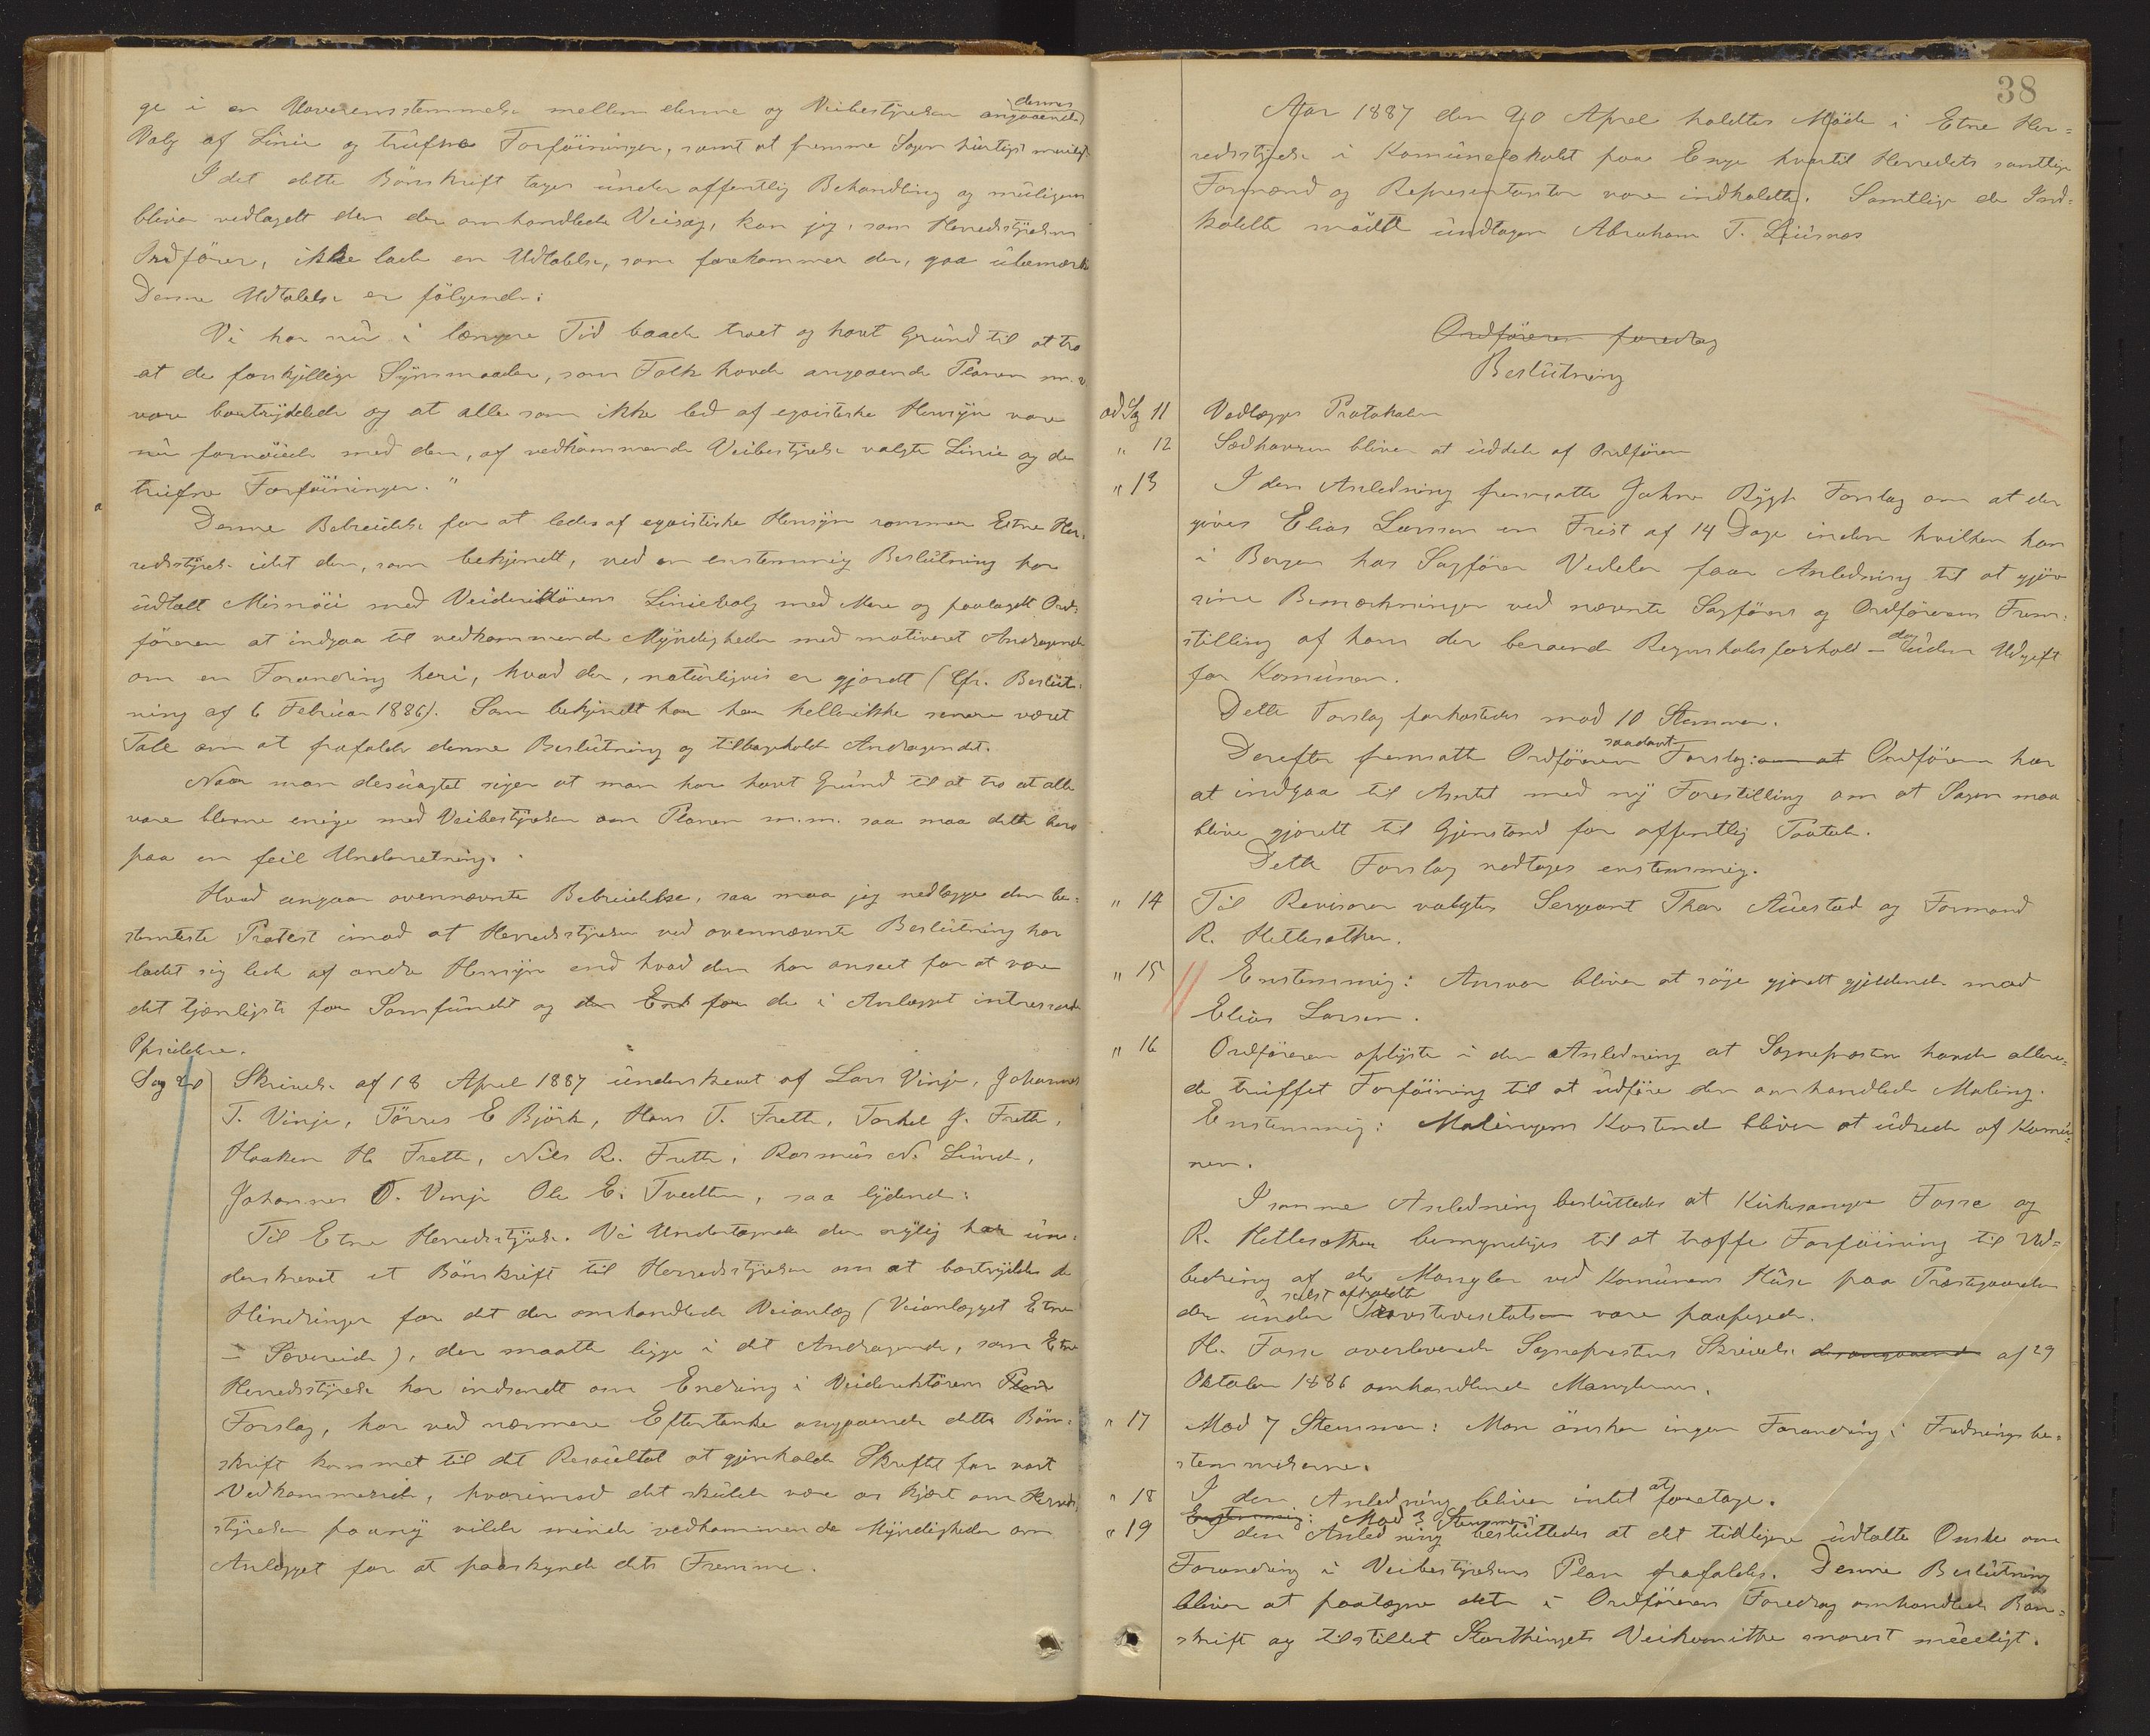 ge i en Uoverensstemmelse mellem denne og Veibestyrelsen angaaende dennes
Valg af Linie og trufne Forføininger, samt at fremme Sagen hurtigst muligt.
Idet dette Bönskrift tages under offentlig Behandling og muligens
bliver vedlagdt den der omhandlede Veisag, kan jeg, som Herredsstyrelsens
Ordförer, ikke lade en Udtalelse, som forekommer der, gaa ubemærket
Denne Udtalelse er fölgende:
Vi har nu i længere Tid baade troet og havt Grund til at tro
at de forskjellige Synsmaader, som Folk havde angaaende Planen m.v.
vare bortryddede og at alle som ikke led af egoistiske Hensyn vare
nu fornöiede med den, af vedkommende Veibestyrelse valgte Linie og de
trufne Forföininger."
Denne Bebreidelse for at ledes af egoistiske Hensyn rammer Etne Her-
redsstyrelse idet den, som bekjendt, ved en enstemmig Beslutning har
udtalt Misnöie med Veidirektörens Linievalg med Mere og paalagdt Ord-
föreren at indgaa til vedkommende Myndigheder med motiveret Andragende
om en Forandring heri, hvad der, naturligvis er gjordt (Cfr. Beslut-
ning af 6 Februar 1886). Som bekjendt har der hellerikke senere været
Tale om at frafalde denne Beslutning og tilbageholde Andragendet.
Naar man desuagtet siger at man har havt Grund til at tro at alle
vare blevne enige med Veibestyrelsen om Planen m.m. saa maa dette bero
paa en feil Underretning.
Hvad angaar ovennævnte Bebreidelse, saa maa jeg nedlægge den be-
stemteste Protest imod at Herredsstyrelsen ved ovennævnte Beslutning har
ladet sig lede af andre Hensyn end hvad den har anseet for at være
det tjenligste for Samfundet og den End for de i Anlægget intresserede
Opsiddere.
Sag 20 Skrivelse af 18 April 1887 underskrevet af Lars Vinje, Johannes
T. Vinje, Törres E Björk, Hans T. Frette, Torkel J. Frette,
Haaken H. Frette, Nils R. Frette, Rasmus N. Lunde,
Johannes O. Vinje Ole E. Tvedten, saa lydende:
Til Etne Herredsstyrelse. Vi Undertegnede der nylig har un-
derskrevet et Bönskrift til Herredsstyrelsen om at bortrydde de
Hindringer for det der omhandlede Veianlæg (Veianlægget Etne
- Sævereide), der maatte ligge i det Andragende, som Etne
Herredsstyrelse har indsendt om Endring i Veidirektörens Plan
Forslag, har ved nærmere Eftertanke angaaende dette Bön-
skrift kommet til det Resultat at gjenkalde Skriftet for vort
Vedkommende, hvorimod det skulde være os kjært om Herreds-
styrelsen paany vilde minde vedkommende Myndigheder om
Anlægget for at paaskynde dets Fremme.
38
Aar 1887 den 20 April holdtes Möde i Etne Her-
redsstyrelse i Komunelokalet paa Enge hvortil Herredets samtlige
Formænd og Representanter vare indkaldte. Samtlige de Ind-
kaldte mödte undtagen Abraham T. Liusnæs
Ordföreren foredrag
Beslutning
ad Sag 11 Vedlægges Protokolen
" 12 Sædhavren bliver at uddele af Ordföreren
" 13 I den Anledning fremsatte John Rygh Forslag om at der
gives Elias Larssen en Frist af 14 Dage inden hvilken han
i Bergen hos Sagförer Vedeler faar Anledning til at gjöre
sine Bemærkninger ved nævnte Sagförers og Ordförerens Frem-
stilling af hans der beroende Regnskabsforhold - dog uden Udgift
for Komunen.
Dette Forslag forkastedes mod 10 Stemmer.
Derefter fremsatte Ordföreren saadant Forslag: om at Ordföreren har
at indgaa til Amtet med ny Forestilling om at Sagen maa
blive gjordt til Gjenstand for offentlig Paatale.
Dette Forslag vedtoges enstemmig.
" 14 Til Revisorer valgtes Sergeant Thor Austad og Formand
R. Hetlesæther.
" 15 Enstemmig: Ansvar bliver at söge gjordt gjeldende mod
Elias Larsen.
" 16 Ordföreren oplyste i den Anledning at Sognepræsten havde allere-
de truffet Forföining til at udföre den omhandlede Maling.
Enstemmig: Malingens Kostende bliver at udrede af Komu-
nen.
I samme Anledning besluttedes at Kirkesanger Fosse og
R. Hetlesæther bemyndiges til at træffe Forföining til Ud-
bedring af de Mangler ved Komunens Huse paa Præstegaarden
der under sidst afholdt vare paapegede.
H. Fosse overleverede Sognepræstens Skrivelse desangaaende af 29
Oktober 1886 omhandlende Manglerne.
" 17 Mod 7 Stemmer: Man önsker ingen Forandring i Fredningsbe-
stemmelserne.
" 18 I den Anledning bliver intet at foretage.
Enstemmig: Mod 3 Stemmer:
" 19 I den Anledning besluttedes at det tidligere udtalte Önske om
Forandring i Veibestyrelsens Plan frafaldes. Denne Beslutning
bliver at paategne det i Ordförerens Foredrag omhandlede Bön-
skrift og tilstillet Storthingets Veikomitte snarest mueligt.